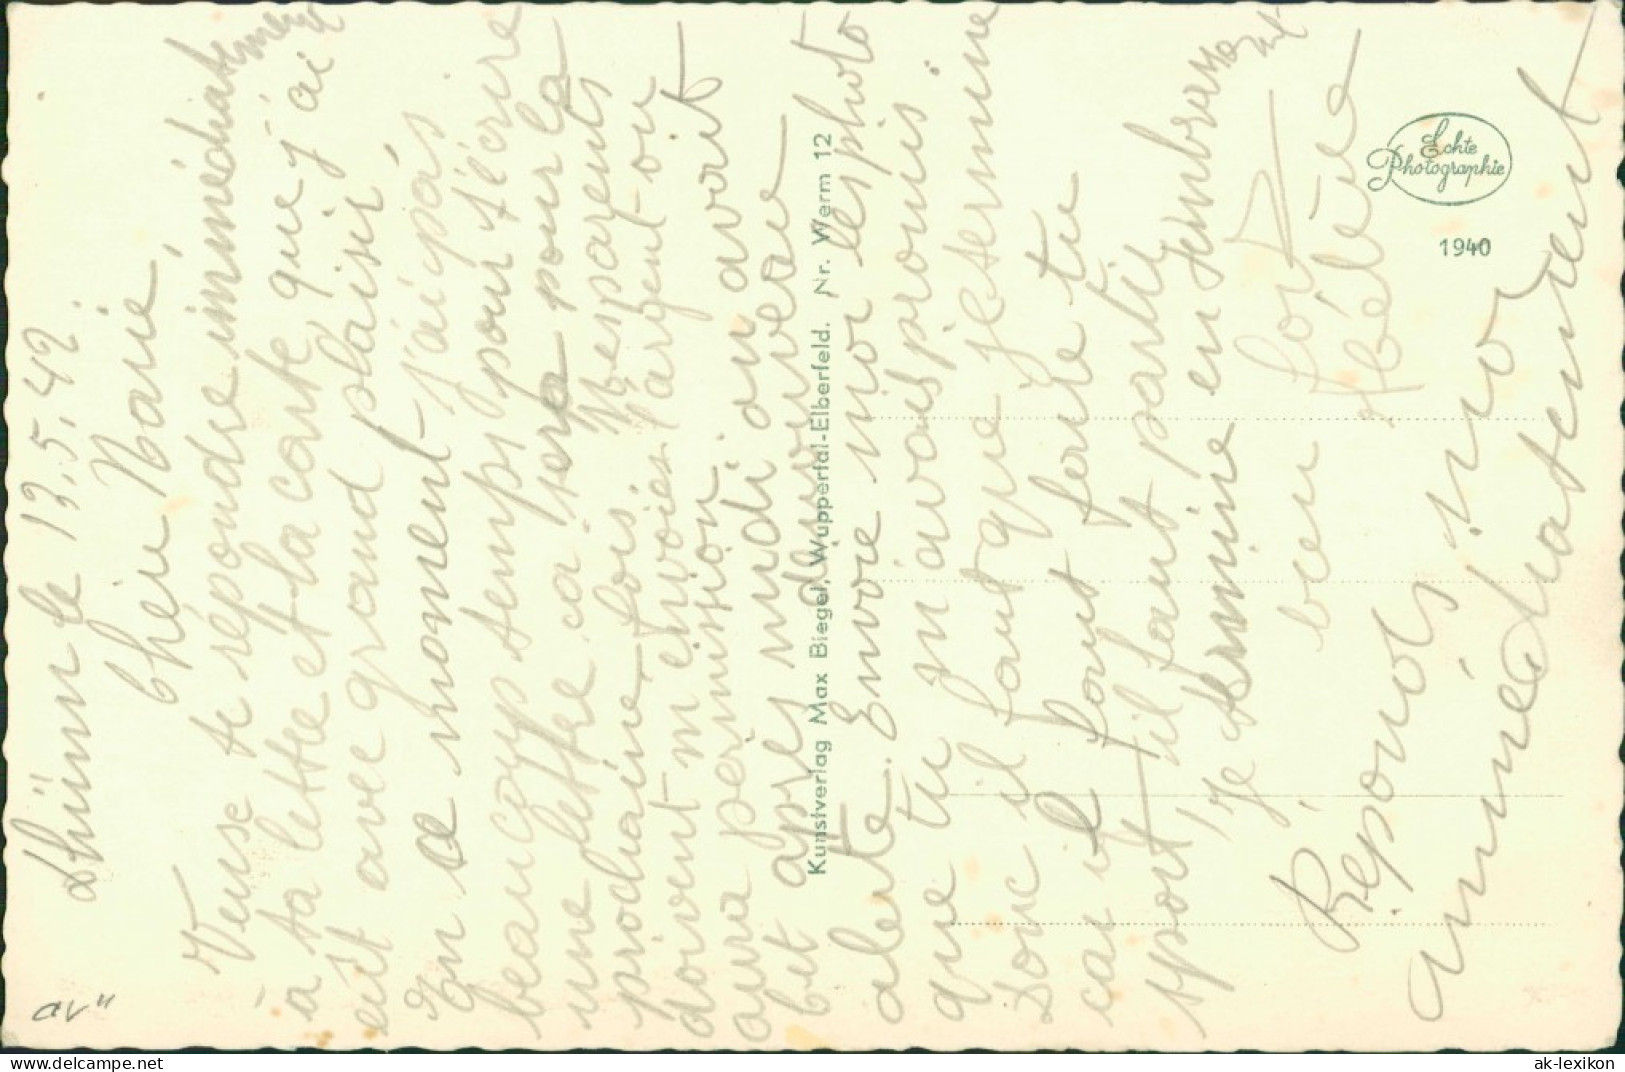 le 13.5.42.
Chère Marie,
Veuse te repondre immédiatement
à ta lettre et la carte que j'ai
eut avec grand plaisir
En ce moment j'ai pas
beaucoup temps pour t'écrire
une lettre. ca sera pour la
prochaine fois. Mes parents
doivent m'envoies l'argent on
aura permission
et apres midi on avait
alerte. Envoie moi les photo
que tu m'avais promis
Donc il faut que je termine
car il faut ferme tu
sport, il faut partir
Je termine en t'embrassant
bien fort
Hélène
Réponds moi
immediatement
Kunstverlag Max Biegel, Wuppertal-Elberfeld. Nr. Werm 12
Echte
Photographie
1940
av"
www.delcampe.net
ak-lexikon